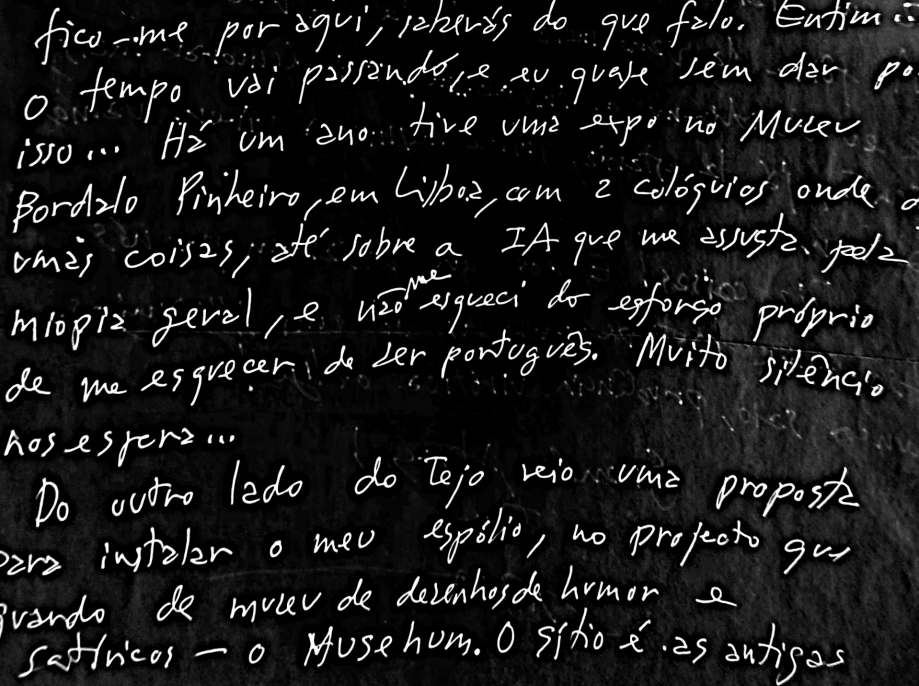 fico-me por aqui, saberás do que falo. Enfim...
o tempo vai passando, e eu quase sem dar po
isso... Há um ano tive uma expo no Museu
Bordalo Pinheiro, em Lisboa, com 2 colóquios onde
umas coisas, até sobre a IA que me assusta pela
miopia geral, e não me esqueci do esforço próprio
de me esquecer de ser português. Muito silêncio
nos espera...
Do outro lado do Tejo veio uma proposta
para instalar o meu espólio, no projecto que
guardo de museu de desenhos de humor e
satíricos — o Musehum. O sítio é as antigas